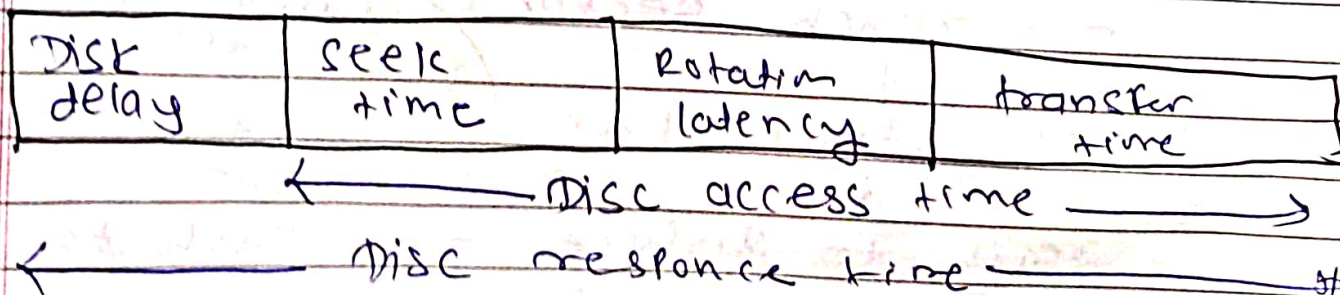 Disk
delay
seek
time
Rotation
latency
transfer
time
Disc access time
Disc responce time